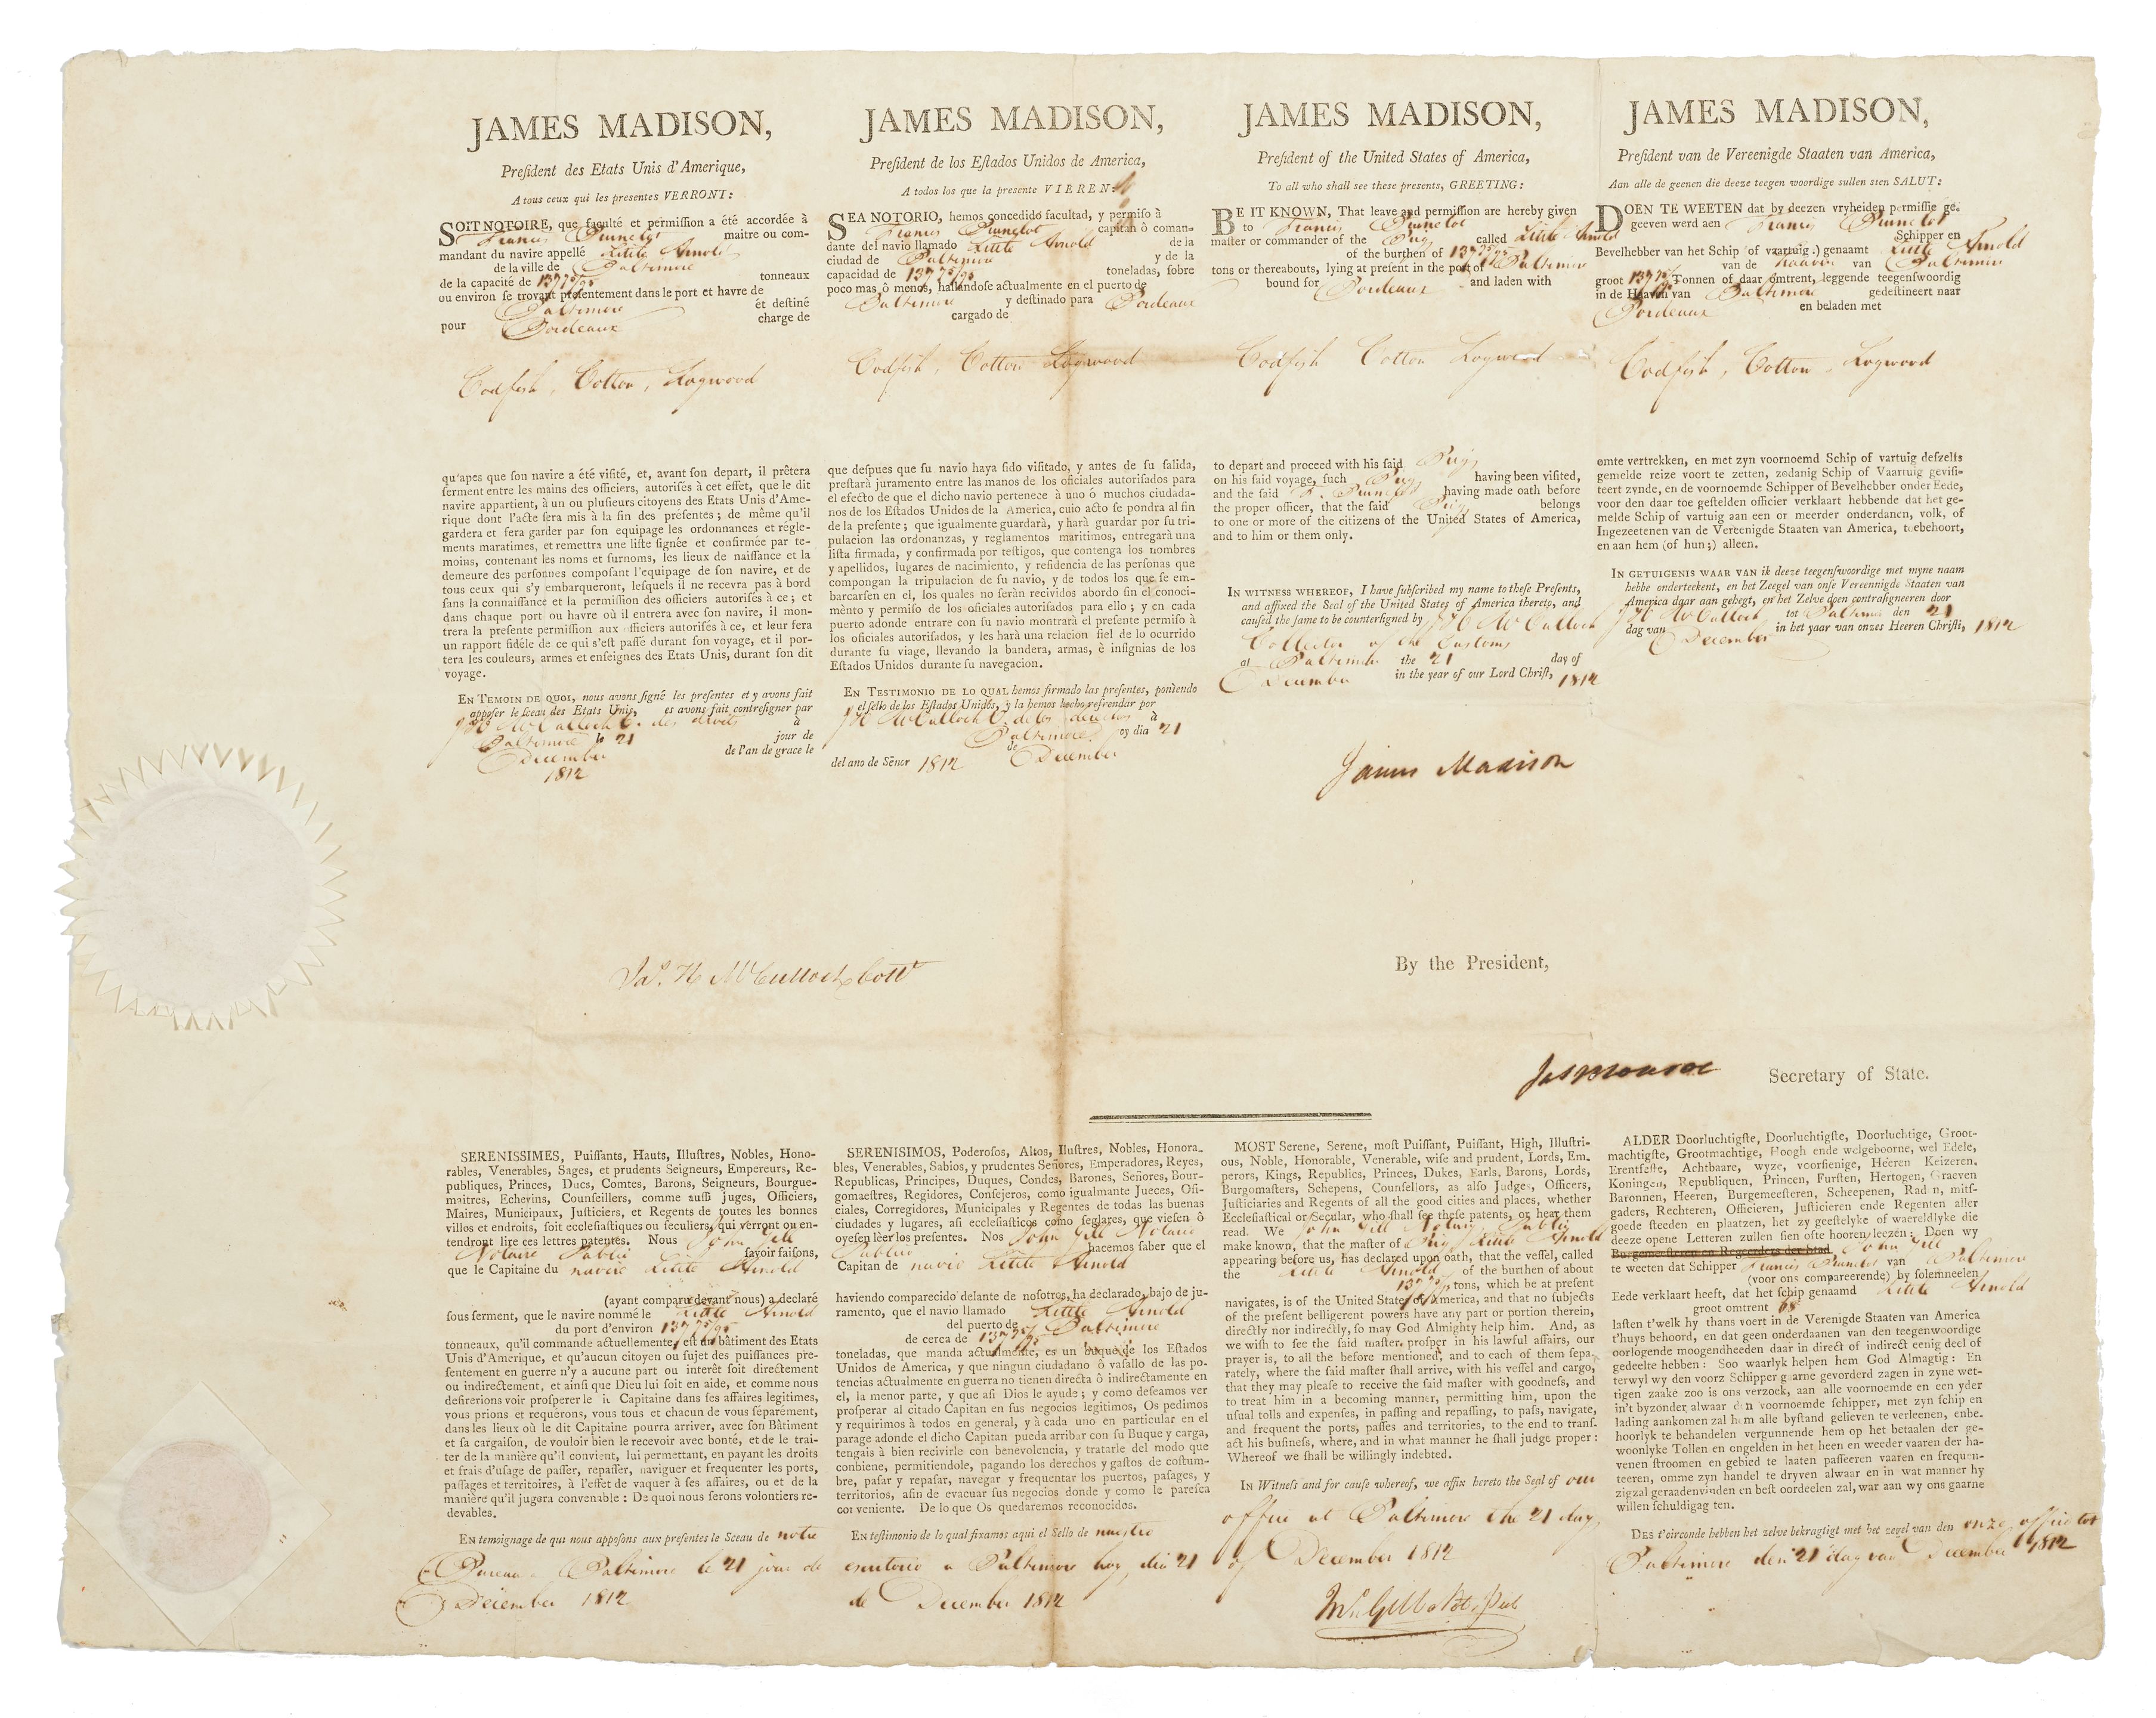 JAMES MADISON,
Preſident des Etats Unis d'Amerique,
A tous ceux qui les presentes VERRONT:
SOIT NOTOIRE, que faculté et permiſſion a été accordée à
Francis maitre ou com-
mandant du navire appellé Arnold
de la ville de Baltimore
de la capacité de 137 75/95 tonneaux
ou environ ſe trovant préſentement dans le port et havre de
Baltimore et deſtiné
pour Bordeaux charge de
Codfish, Cotton, Logwood
qu'apes que ſon navire a été viſité, et, avant ſon depart, il prêtera
ſerment entre les mains des officiers, autoriſés à cet effet, que le dit
navire appartient, à un ou pluſieurs citoyens des Etats Unis d'Ame-
rique dont l'acte ſera mis à la fin des préſentes; de même qu'il
gardera et ſera garder par ſon equipage les ordonnances et régle-
ments maratimes, et remettra une liſte ſignée et confirmée par te-
moins, contenant les noms et ſurnoms, les lieux de naiſſance et la
demeure des perſonnes compoſant l'equipage de ſon navire, et de
tous ceux qui s'y embarqueront, leſquels il ne recevra pas à bord
ſans la connaiſſance et la permiſſion des officiers autoriſés à ce; et
dans chaque port ou havre où il entrera avec ſon navire, il mon-
trera la preſente permiſſion aux officiers autoriſés à ce, et leur ſera
un rapport fidéle de ce qui s'eſt paſſé durant ſon voyage, et il por-
tera les couleurs, armes et enſeignes des Etats Unis, durant ſon dit
voyage.
EN TEMOIN DE QUOI, nous avons ſigné les preſentes et y avons fait
appoſer le ſceau des Etats Unis, es avons fait contreſigner par
J H McCulloch C. des droits à
Baltimore le 21 jour de
December de l'an de grace le
1812
JAMES MADISON,
Preſident de los Eſtados Unidos de America,
A todos los que la presente VIEREN:
SEA NOTORIO, hemos concedido facultad, y permiſo à
Francis capitan ô coman-
dante del navio llamado Arnold de la
ciudad de Baltimore y de la
capacidad de 137 75/95 toneladas, ſobre
poco mas ô menos, hallandoſe actualmente en el puerto de
Baltimore y deſtinado para Bordeaux
cargado de
Codfish, Cotton Logwood
que deſpues que ſu navio haya ſido viſitado, y antes de ſu ſalida,
preſtarà juramento entre las manos de los oficiales autoriſados para
el efecto de que el dicho navio pertenece à uno ó muchos ciudada-
nos de los Eſtados Unidos de la America, cuio acto ſe pondra al fin
de la preſente; que igualmente guardarà, y harà guardar por ſu tri-
pulacion las ordonanzas, y reglamentos maritimos, entregarà una
liſta firmada, y confirmada por teſtigos, que contenga los nombres
y apellidos, lugares de nacimiento, y reſidencia de las perſonas que
compongan la tripulacion de ſu navio, y de todos los que ſe em-
barcarſen en el, los quales no ſeràn recividos abordo ſin el conoci-
mènto y permiſo de los oficiales autoriſados para ello; y en cada
puerto adonde entrare con ſu navio montrarà el preſente permiſo à
los oficiales autoriſados, y les harà una relacion fiel de lo ocurrido
durante ſu viage, llevando la bandera, armas, è inſignias de los
Eſtados Unidos durante ſu navegacion.
EN TESTIMONIO DE LO QUAL hemos firmado las preſentes, poniendo
el ſello de los Eſtados Unidos, y la hemos hecho refrendar por
J H McCulloch C. de los derechos à
Baltimore oy dia 21
de December
del ano de Señor 1812
JAMES MADISON,
Preſident of the United States of America,
To all who shall see these presents, GREETING:
BE IT KNOWN, That leave and permiſſion are hereby given
to Francis
maſter or commander of the Brig called Arnold
of the burthen of 137 75/95
tons or thereabouts, lying at preſent in the port of Baltimore
bound for Bordeaux and laden with
Codfish Cotton Logwood
to depart and proceed with his ſaid Brig
on his ſaid voyage, ſuch Brig having been viſited,
and the ſaid F. having made oath before
the proper officer, that the ſaid Brig belongs
to one or more of the citizens of the United States of America,
and to him or them only.
IN WITNESS WHEREOF, I have ſubſcribed my name to theſe Preſents,
and affixed the Seal of the United States of America thereto, and
cauſed the ſame to be counterſigned by J H McCulloch
Collector of the Customs
at Baltimore the 21 day of
December in the year of our Lord Chriſt, 1812
James Madison
JAMES MADISON,
Preſident van de Vereenigde Staaten van America,
Aan alle de geenen die deeze teegen woordige sullen sten SALUT:
DOEN TE WEETEN dat by deezen vryheiden permiſſie ge-
geeven werd aen Francis Schipper en
Bevelhebber van het Schip (of vaartuig.) genaamt Arnold
van de van Baltimore
groot 137 75/95 Tonnen of daar omtrent, leggende teegenſwoordig
in de Haaven van Baltimore gedeſtineert naar
Bordeaux en beladen met
Codfish, Cotton, Logwood
omte vertrekken, en met zyn voornoemd Schip of vartuig deſzelfs
gemelde reize voort te zetten, zodanig Schip of Vaartuig geviſi-
teert zynde, en de voornoemde Schipper of Bevelhebber onder Eede,
voor den daar toe geſtelden officier verklaart hebbende dat het ge-
melde Schip of vartuig aan een or meerder onderdanen, volk, of
Ingezeetenen van de Vereenigde Staaten van America, toebehoort,
en aan hem (of hun;) alleen.
IN GETUIGENIS WAAR VAN ik deeze teegenſwoordige met myne naam
hebbe onderteekent, en het Zeegel van onſe Vereennigde Staaten van
America daar aan gehegt, en het Zelve doen contraſigneeren door
J H McCulloch tot Baltimore den 21
dag van December in het yaar van onzes Heeren Chriſti, 1812
Jas. H McCulloch Collr
By the President,
Jas Monroe Secretary of State.
SERENISSIMES, Puiſſants, Hauts, Illuſtres, Nobles, Hono-
rables, Venerables, Sages, et prudents Seigneurs, Empereurs, Re-
publiques, Princes, Ducs, Comtes, Barons, Seigneurs, Bourgue-
maitres, Echerins, Counſeillers, comme auſſi juges, Officiers,
Maires, Municipaux, Juſticiers, et Regents de toutes les bonnes
villos et endroits, ſoit eccleſiaſtiques ou ſeculiers, qui verront ou en-
tendront lire ces lettres patentes. Nous John Gill
Notaire Public ſavoir faiſons,
que le Capitaine du navire Arnold
(ayant comparu devant nous) a déclaré
ſous ſerment, que le navire nommé le Arnold
du port d'environ 137 75/95
tonneaux, qu'il commande actuellement, eſt un bâtiment des Etats
Unis d'Amerique, et qu'aucun citoyen ou ſujet des puiſſances pre-
ſentement en guerre n'y a aucune part ou interêt ſoit directement
ou indirectement, et ainſi que Dieu lui ſoit en aide, et comme nous
deſirerions voir proſperer le it Capitaine dans ſes affaires legitimes,
vous prions et requerons, vous tous et chacun de vous ſéparement,
dans les lieux où le dit Capitaine pourra arriver, avec ſon Bâtiment
et ſa cargaiſon, de vouloir bien le recevoir avec bonté, et de le trai-
ter de la manière qu'il convient, lui permettant, en payant les droits
et frais d'uſage de paſſer, repaſſer, naviguer et frequenter les ports,
paſſages et territoires, à l'effét de vaquer à ſes affaires, ou et de la
manière qu'il jugera convenable: De quoi nous ferons volontiers re-
devables.
EN temoignage de qui nous appoſons aux preſentes le Sceau de notre
Bureau a Baltimore le 21 jour de
December 1812
SERENISIMOS, Poderoſos, Altos, Iluſtres, Nobles, Honora-
bles, Venerables, Sabios, y prudentes Señores, Emperadores, Reyes,
Republicas, Principes, Duques, Condes, Barones, Señores, Bour-
gomaeſtres, Regidores, Conſejeros, como igualmante Jueces, Ofi-
ciales, Corregidores, Municipales y Regentes de todas las buenas
ciudades y lugares, aſi eccleſiaſticos como ſeglares, que vieſen ô
oyeſen lèer los preſentes. Nos John Gill Notario
Publico hacemos ſaber que el
Capitan de navio Arnold
haviendo comparecido delante de noſotros, ha declarado, bajo de ju-
ramento, que el navio llamado Arnold
del puerto de Baltimore
de cerca de 137 75/95
toneladas, que manda actualmente, es un buque de los Eſtados
Unidos de America, y que ningun ciudadano ô vaſallo de las po-
tencias actualmente en guerra no tienen directa ô indirectamente en
el, la menor parte, y que aſi Dios le ayude; y como deſeamos ver
proſperar al citado Capitan en ſus negocios legitimos, Os pedimos
y requirimos à todos en general, y à cada uno en particular en el
parage adonde el dicho Capitan pueda arribar con ſu Buque y carga,
tengais à bien recivirle con benevolencia, y tratarle del modo que
conbiene, permitiendole, pagando los derechos y gaſtos de coſtum-
bre, paſar y repaſar, navegar y frequentar los puertos, paſages, y
territorios, afin de evacuar ſus negocios donde y como le pareſca
conveniente. De lo que Os quedaremos reconocidos.
EN teſtimonio de lo qual fixamos aqui el Sello de nuestro
escritorio a Baltimore hoy dia 21
de December 1812
MOST Serene, Serene, moſt Puiſſant, Puiſſant, High, Illuſtri-
ous, Noble, Honorable, Venerable, wiſe and prudent, Lords, Em-
perors, Kings, Republics, Princes, Dukes, Earls, Barons, Lords,
Burgomaſters, Schepens, Counſellors, as alſo Judges, Officers,
Juſticiaries and Regents of all the good cities and places, whether
Eccleſiaſtical or Secular, who ſhall ſee theſe patents, or hear them
read. We John Gill Notary Public
make known, that the master of Brig Arnold
appearing before us, has declared upon oath, that the veſſel, called
the Arnold of the burthen of about
137 75/95 tons, which he at preſent
navigates, is of the United States of America, and that no ſubjects
of the preſent belligerent powers have any part or portion therein,
directly nor indirectly, ſo may God Almighty help him. And, as
we wiſh to ſee the ſaid maſter proſper in his lawful affairs, our
prayer is, to all the before mentioned, and to each of them ſepa-
rately, where the ſaid maſter ſhall arrive, with his veſſel and cargo,
that they may pleaſe to receive the ſaid maſter with goodneſs, and
to treat him in a becoming manner, permitting him, upon the
uſual tolls and expenſes, in paſſing and repaſſing, to paſs, navigate,
and frequent the ports, paſſes and territories, to the end to tranſ-
act his buſineſs, where, and in what manner he ſhall judge proper:
Whereof we ſhall be willingly indebted.
IN Witneſs and for cauſe whereof, we affix hereto the Seal of our
office at Baltimore the 21 day
of December 1812
Jno Gill Not. Pub
ALDER Doorluchtigſte, Doorluchtigſte, Doorluchtige, Groot-
machtigſte, Grootmachtige, Hoogh ende welgeboorne, wel Edele,
Erentſeſte, Achtbaare, wyze, voorſienige, Heeren Keizeren,
Koningen, Republiquen, Princen, Furſten, Hertogen, Graeven
Baronnen, Heeren, Burgemeeſteren, Scheepenen, Rad n, mitſ-
gaders, Rechteren, Officieren, Juſticieren ende Regenten aller
goede ſteeden en plaatzen, het zy geeſtelyke of waereldlyke die
deeze opene Letteren zullen ſien ofte hooren leezen: Doen wy
Burgemeeſteren en Regenders der Stad John Gill
te weeten dat Schipper Francis van Baltimore
(voor ons compareerende) by ſolemneelen
Eede verklaart heeft, dat het ſchip genaamd Arnold
groot omtrent 68
laſten t'welk hy thans voert in de Verenigde Staaten van America
t'huys behoord, en dat geen onderdaanen van den teegenwoordige
oorlogende moogendheeden daar in direct of indirect eenig deel of
gedeelte hebben: Soo waarlyk helpen hem God Almagtig: En
terwyl wy den voorz Schipper g arne gevorderd zagen in zyne wet-
tigen zaake zoo is ons verzoek, aan alle voornoemde en een yder
in't byzonder alwaar den voornoemde ſchipper, met zyn ſchip en
lading aankomen zal hem alle byſtand gelieven te verleenen, enbe-
hoorlyk te behandelen vergunnende hem op het betaalen der ge-
woonlyke Tollen en ongelden in het heen en weeder vaaren der ha-
venen ſtroomen en gebied te laaten paſſeeren vaaren en frequen-
teeren, omme zyn handel te dryven alwaar en in wat manner hy
zigzal geraadenvinden en beſt oordeelen zal, war aan wy ons gaarne
willen ſchuldigag ten.
DES t'oirconde hebben het zelve bekragtigt met het zegel van den onze officie tot
Baltimore den 21 dag van December 1812